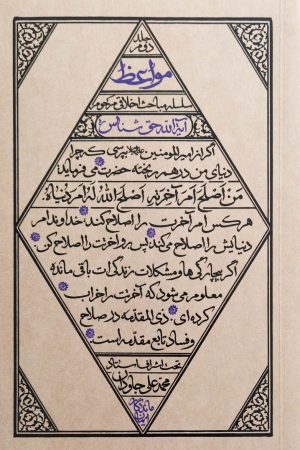 جلد
دوم
مواعظ
سلسله مباحث اخلاقی مرحوم
آیة‌الله حق‌شناس
اگر از امیرالمومنین علیه‌السلام بپرسی که چرا
دنیای من در هم ریخته حضرت می‌فرماید
مَنْ اَصْلَحَ اَمْرَ آخِرَتِهِ اَصْلَحَ اللّهُ لَهُ اَمْرَ دُنْیاهُ
هر کس امر آخرت را اصلاح کند، خداوند امر
دنیایش را اصلاح می‌کند پس برو آخرت را اصلاح کن.
اگر بیچارگی‌ها و مشکلات زندگی‌ات باقی مانده
معلوم می‌شود که آخرتت را خراب
کرده‌ای. ذی‌المقدمه در صلاح
و فساد تابع مقدمه است
تحت اشراف استاد
محمدعلی جاودان
ماندگار